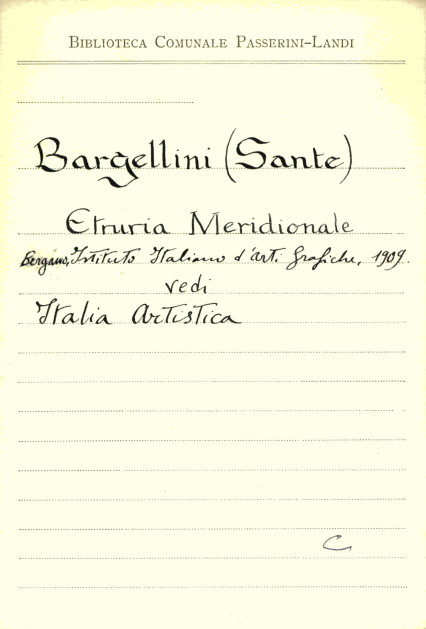 BIBLIOTECA COMUNALE PASSERINI-LANDI
Bargellini (Sante)
Etruria Meridionale
Bergamo, Istituto Italiano d'Arti Grafiche, 1909.
vedi
Italia Artistica
C